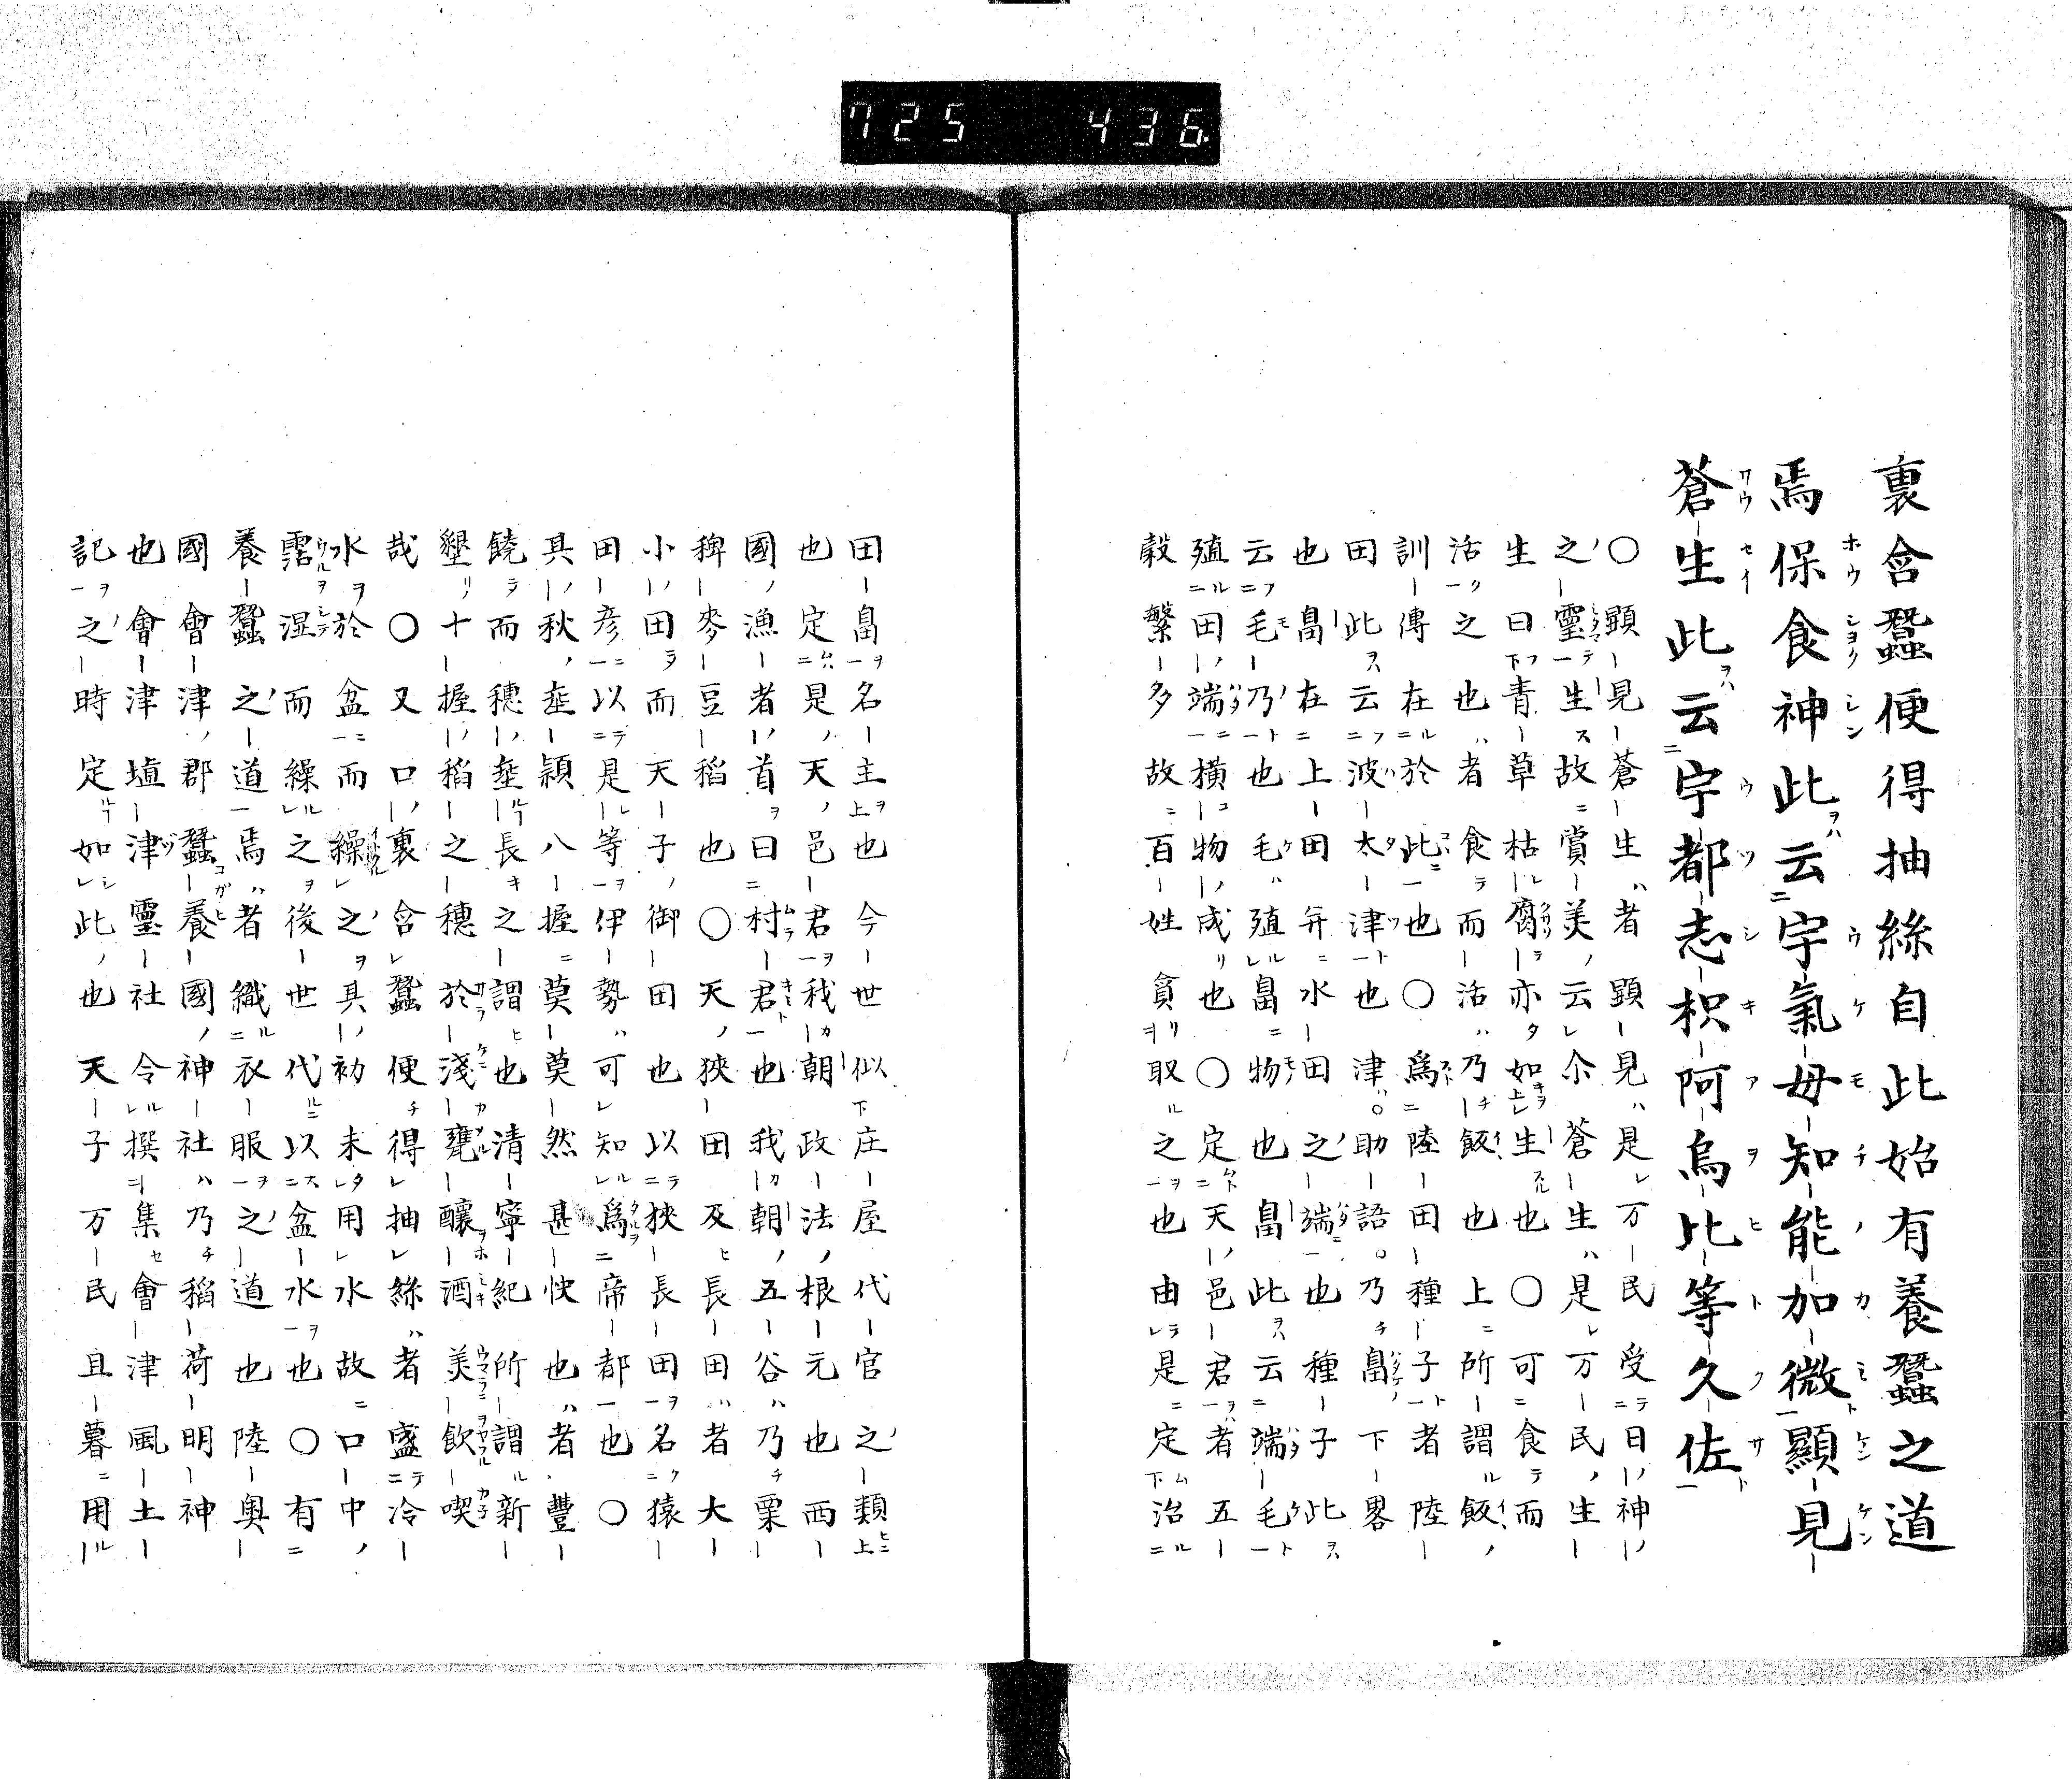 725 436
裏含蠶便得抽絲自此始有養蠶之道
焉保食神此云宇氣母知能加微顯見
蒼生此云宇都志枳阿烏比等久佐
○顕見蒼生者顕見是万民受日神
之靈生故賞美云尒蒼生是万民生
生曰青草枯腐亦如生也○可食而
活之也者食而活乃飯也上所謂飯
訓傳在於此也○為陸田種子者陸
田此云波太津也津助語乃畠下畧
也畠在上田并水田之端也種子此
云毛乃也毛殖畠物也畠此云端毛
殖田端横物成也○定天邑君者五
穀繁多故百姓貪取之也由是定治
田畠名主也今世似庄屋代官之類
也定是天邑君我朝政法根元也西
國漁者首曰村君也我朝五谷乃粟
稗麥豆稻也○天狹田及長田者大
小田而天子御田也以狹長田名猿
田彦以是等伊勢可知為帝都也○
具秋埀穎八握莫莫然甚快也者豐
饒而穗埀長之謂也清寧紀所謂新
墾十握稻之穗於淺甕釀酒美飲喫
哉○又口裏含蠶便得抽絲者盛冷
水於盆而繰之具初未用水故口中
霑湿而繰之後世代以盆水也○有
養蠶之道焉者織衣服之道也陸奥
國會津郡蠶養國神社乃稻荷明神
也會津埴津靈社令撰集會津風土
記之時定如此也天子万民且暮用